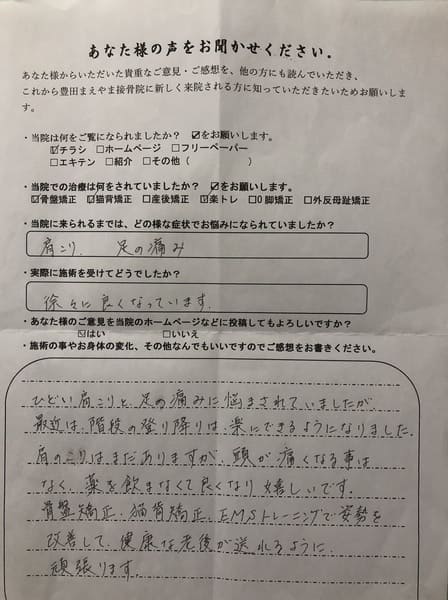 あなた様の声をお聞かせください.
あなた様からいただいた貴重なご意見・ご感想を、他の方にも読んでいただき、
これから豊田まえやま接骨院に新しく来院される方に知っていただきたいためお願いしま
す。
・当院は何をご覧になられましたか? ☑をお願いします。
☑チラシ □ホームページ □フリーペーパー
□エキテン □紹介 □その他( )
・当院での治療は何をされていましたか? ☑をお願いします。
☑骨盤矯正 ☑猫背矯正 □産後矯正 ☑楽トレ □O脚矯正 □外反母趾矯正
・当院に来られるまでは、どの様な症状でお悩みになられていましたか?
肩こり. 足の痛み
・実際に施術を受けてどうでしたか?
徐々に良くなっています.
・あなた様のご意見を当院のホームページなどに投稿してもよろしいですか?
☑はい □いいえ
・施術の事やお身体の変化、その他なんでもいいですのでご感想をお書きください。
ひどい肩こりと、足の痛みに悩まされていましたが、
最近は、階段の登り降りは、楽にできるようになりました.
肩のこりはまだありますが、頭が痛くなる事は
なく、薬を飲まなくて良くなり嬉しいです。
骨盤矯正、猫背矯正、EMSトレーニングで姿勢を
改善して、健康な老後が送れるように、
頑張ります。